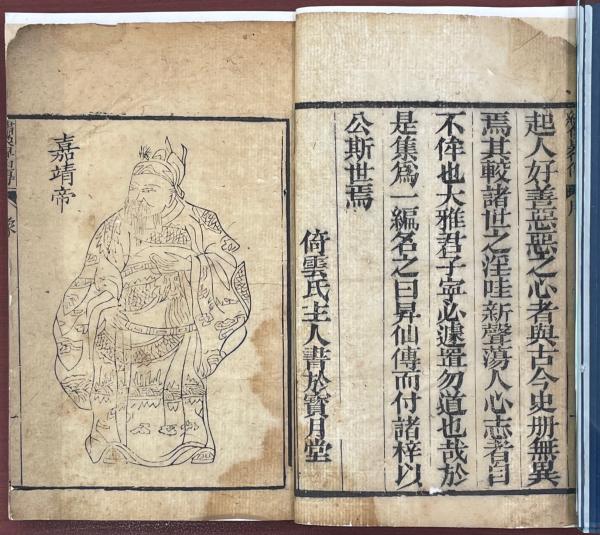 起人好善惡惡之心者與古今史册無異
焉其較諸世之淫哇新聲蕩人心志者自
不侔也大雅君子寧必遽置勿道也哉於
是集爲一編名之曰昇仙傳而付諸梓以
公斯世焉
倚雲氏主人書於寶月堂
嘉靖帝